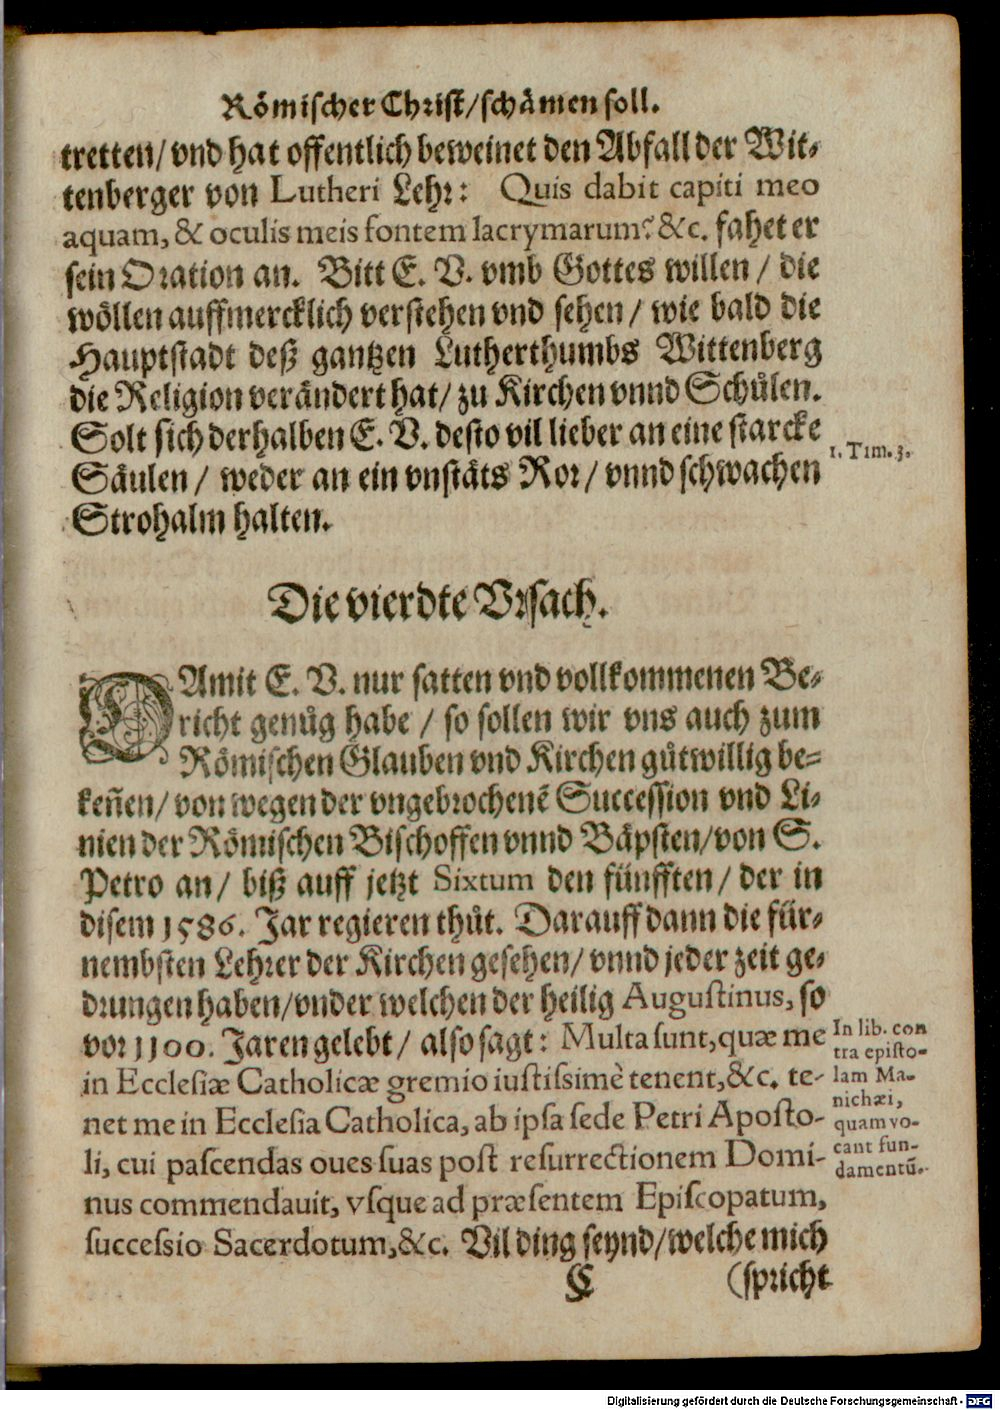 Römischer Christ/schämen soll.
tretten/ vnd hat offentlich beweinet den Abfall der Wit-
tenberger von Lutheri Lehr: Quis dabit capiti meo
aquam, & oculis meis fontem lacrymarum? &c. fahet er
sein Oration an. Bitt E. V. vmb Gottes willen / die
wöllen auffmercklich verstehen vnd sehen / wie bald die
Hauptstadt deß gantzen Lutherthumbs Wittenberg
die Religion verändert hat/ zu Kirchen vnnd Schůlen.
Solt sich derhalben E. V. desto vil lieber an eine starcke
1. Tim. 3.
Säulen / weder an ein vnstäts Ror/ vnnd schwachen
Strohalm halten.
Die vierdte Vrsach.
DAmit E. V. nur satten vnd vollkommenen Be-
richt genůg habe / so sollen wir vns auch zum
Römischen Glauben vnd Kirchen gůtwillig be-
keñen/ von wegen der vngebrochenẽ Succession vnd Li-
nien der Römischen Bischoffen vnnd Bäpsten/von S.
Petro an/ biß auff jetzt Sixtum den fünfften/ der in
disem 1586. Jar regieren thůt. Darauff dann die für-
nembsten Lehrer der Kirchen gesehen/ vnnd jeder zeit ge-
drungen haben/vnder welchen der heilig Augustinus, so
vor 1100. Jaren gelebt/ also sagt: Multa sunt, quæ me
in Ecclesiæ Catholicæ gremio iustissimè tenent,&c. te-
net me in Ecclesia Catholica, ab ipsa sede Petri Aposto-
li, cui pascendas oues suas post resurrectionem Domi-
nus commendauit, vsque ad præsentem Episcopatum,
successio Sacerdotum,&c. Vil ding seynd/welche mich
In lib. con
tra episto-
lam Ma-
nichæi,
quam vo-
cant fun-
damentũ.
C (spricht
Digitalisierung gefördert durch die Deutsche Forschungsgemeinschaft - DFG